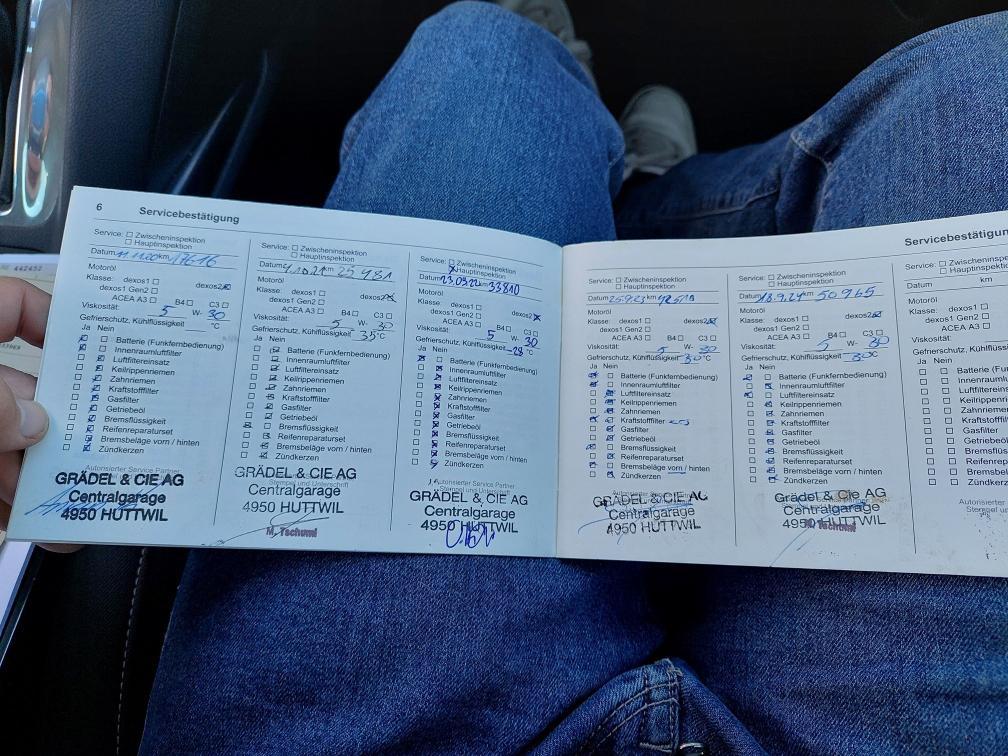 6 Servicebestätigung
Service: ☐ Zwischeninspektion
☐ Hauptinspektion
Datum 11.11.20 km 17616
Motoröl
Klasse: dexos1 ☐ dexos2 ☒
dexos1 Gen2 ☐
ACEA A3 ☐ B4 ☐ C3 ☐
Viskosität: 5 W- 30
Gefrierschutz, Kühlflüssigkeit °C
Ja Nein
Batterie (Funkfernbedienung)
Innenraumluftfilter
Luftfiltereinsatz
Keilrippenriemen
Zahnriemen
Kraftstofffilter
Gasfilter
Getriebeöl
Bremsflüssigkeit
Reifenreparaturset
Bremsbeläge vorn / hinten
Zündkerzen
Autorisierter Service Partner
GRÄDEL & CIE AG
Centralgarage
4950 HUTTWIL
Service: ☐ Zwischeninspektion
☐ Hauptinspektion
Datum 10.21 km 25481
Motoröl
Klasse: dexos1 ☐ dexos2 ☒
dexos1 Gen2 ☐
ACEA A3 ☐ B4 ☐ C3 ☐
Viskosität: 5 W- 30
Gefrierschutz, Kühlflüssigkeit 35 °C
Ja Nein
Batterie (Funkfernbedienung)
Innenraumluftfilter
Luftfiltereinsatz
Keilrippenriemen
Zahnriemen
Kraftstofffilter
Gasfilter
Getriebeöl
Bremsflüssigkeit
Reifenreparaturset
Bremsbeläge vorn / hinten
Zündkerzen
GRÄDEL & CIE AG
Centralgarage
4950 HUTTWIL
M. Tschumi
Service: ☐ Zwischeninspektion
☒ Hauptinspektion
Datum 23.09.22 km 33810
Motoröl
Klasse: dexos1 ☐ dexos2 ☒
dexos1 Gen2 ☐
ACEA A3 ☐ B4 ☐ C3 ☐
Viskosität: 5 W- 30
Gefrierschutz, Kühlflüssigkeit -28 °C
Ja Nein
Batterie (Funkfernbedienung)
Innenraumluftfilter
Luftfiltereinsatz
Keilrippenriemen
Zahnriemen
Kraftstofffilter
Gasfilter
Getriebeöl
Bremsflüssigkeit
Reifenreparaturset
Bremsbeläge vorn / hinten
Zündkerzen
Autorisierter Service Partner
Stempel und Unterschrift
GRÄDEL & CIE AG
Centralgarage
4950 HUTTWIL
Servicebestätigun
Service: ☐ Zwischeninspektion
☐ Hauptinspektion
Datum 25.9.23 km
Motoröl
Klasse: dexos1 ☐ dexos2 ☒
dexos1 Gen2 ☐
ACEA A3 ☐ B4 ☐ C3 ☐
Viskosität: 5 W- 30
Gefrierschutz, Kühlflüssigkeit 30 °C
Ja Nein
Batterie (Funkfernbedienung)
Innenraumluftfilter
Luftfiltereinsatz
Keilrippenriemen
Zahnriemen
Kraftstofffilter
Gasfilter
Getriebeöl
Bremsflüssigkeit
Reifenreparaturset
Bremsbeläge vorn / hinten
Zündkerzen
GRÄDEL & CIE AG
Centralgarage
4950 HUTTWIL
Service: ☐ Zwischeninspektion
☐ Hauptinspektion
Datum 18.9.24 km 50965
Motoröl
Klasse: dexos1 ☐ dexos2 ☒
dexos1 Gen2 ☐
ACEA A3 ☐ B4 ☐ C3 ☐
Viskosität: 5 W- 30
Gefrierschutz, Kühlflüssigkeit 30 °C
Ja Nein
Batterie (Funkfernbedienung)
Innenraumluftfilter
Luftfiltereinsatz
Keilrippenriemen
Zahnriemen
Kraftstofffilter
Gasfilter
Getriebeöl
Bremsflüssigkeit
Reifenreparaturset
Bremsbeläge vorn / hinten
Zündkerzen
Grädel & Cie AG
Centralgarage
4950 HUTTWIL
M. Tschumi
Service: ☐ Zwischeninspekti
☐ Hauptinspektion
Datum km
Motoröl
Klasse: dexos1 ☐
dexos1 Gen2 ☐
ACEA A3 ☐
Viskosität:
Gefrierschutz, Kühlflüssig
Ja Nein
Batterie (Funk
Innenraumluft
Luftfiltereins
Keilrippenrie
Zahnriemen
Kraftstofffilt
Gasfilter
Getriebeöl
Bremsflüss
Reifenrepar
Bremsbelä
Zündkerz
Autorisierter
Stempel un
442452